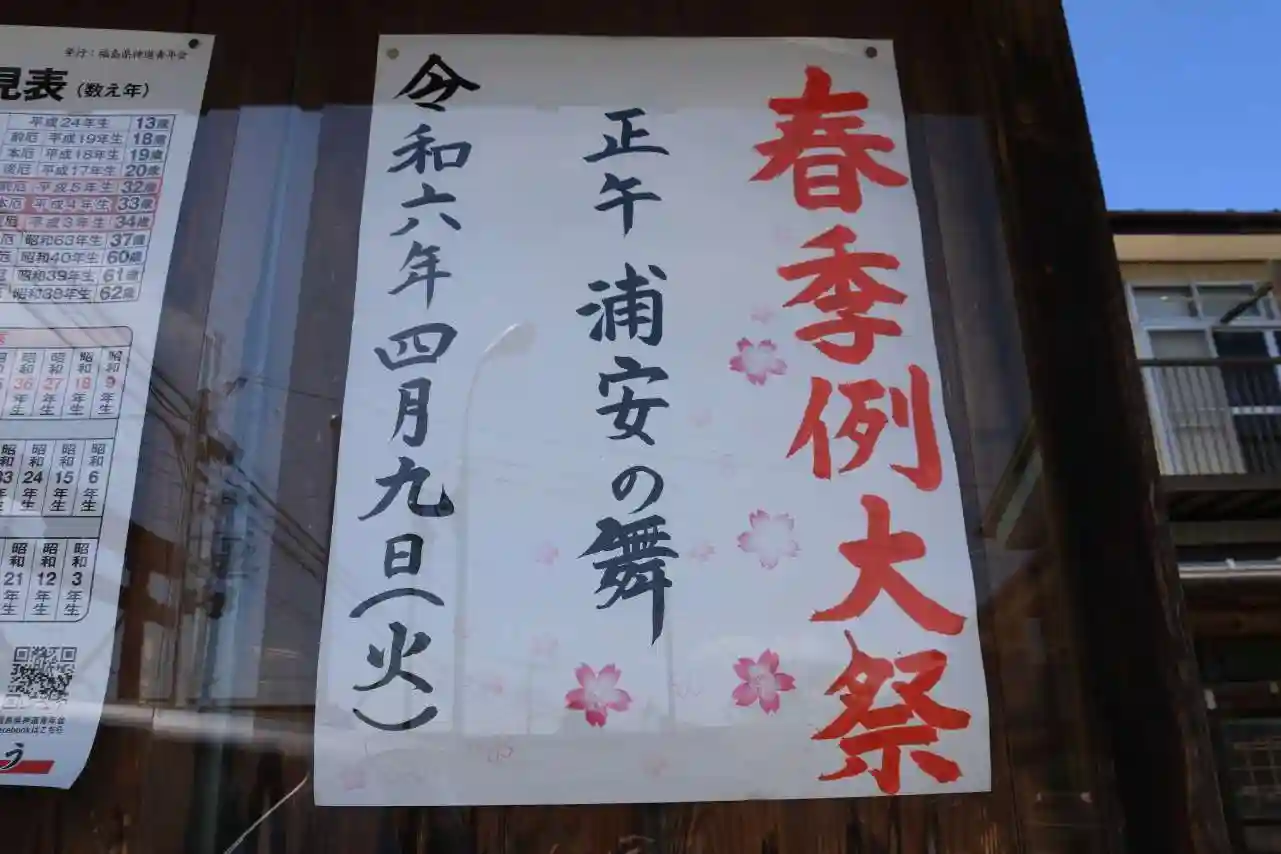 春季例大祭
正午 浦安の舞
令和六年四月九日(火)
発行：福島県神道青年会
見表(数え年)
平成24年生 13歳
前厄 平成19年生 18歳
本厄 平成18年生 19歳
後厄 平成17年生 20歳
前厄 平成5年生 32歳
本厄 平成4年生 33歳
厄 平成3年生 34歳
厄 昭和63年生 37歳
昭和40年生 60歳
昭和39年生 61歳
昭和38年生 62歳
昭和9年生
昭和18年生
昭和27年生
昭和36年生
昭和6年生
昭和15年生
昭和24年生
33年生
昭和3年生
昭和12年生
昭和21年生
福島県神道青年会
facebookはこちら
う